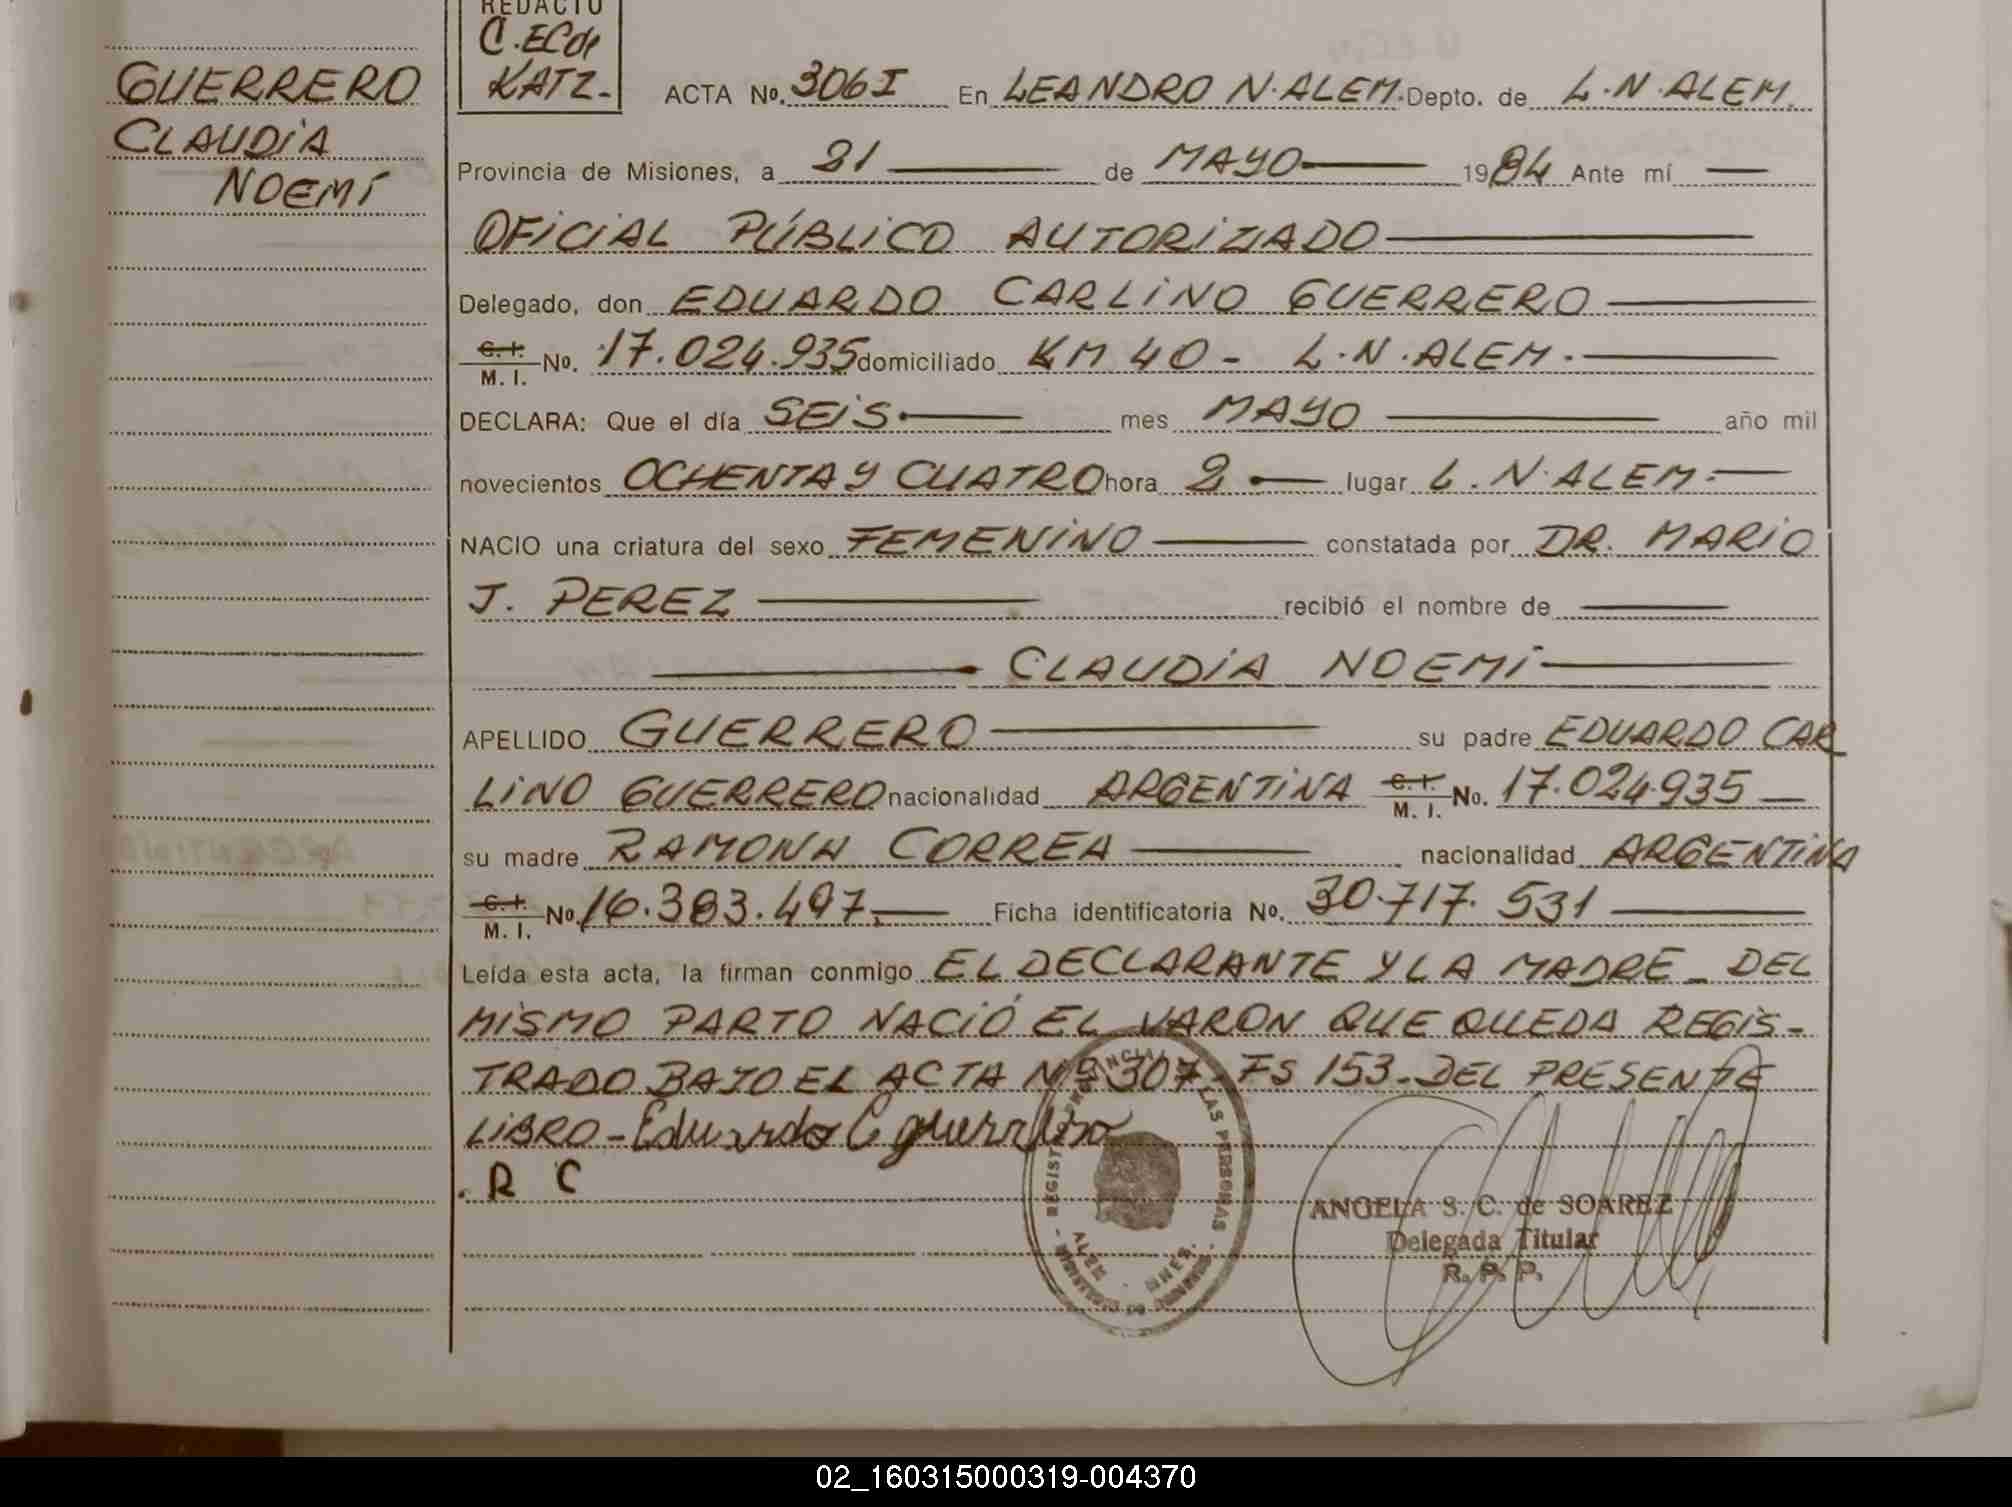 REDACTO
C. EC de
KATZ.-
GUERRERO
CLAUDIA
NOEMÍ
ACTA No. 306 I En LEANDRO N. ALEM. Depto. de L. N. ALEM.
Provincia de Misiones, a 21 de MAYO 1984 Ante mí
OFICIAL PÚBLICO AUTORIZADO
Delegado, don EDUARDO CARLINO GUERRERO
C. I. / M. I. No. 17.024.935 domiciliado KM 40 - L. N. ALEM.
DECLARA: Que el día SEIS mes MAYO año mil
novecientos OCHENTA Y CUATRO hora 2 lugar L. N. ALEM.
NACIO una criatura del sexo FEMENINO constatada por DR. MARIO
J. PEREZ recibió el nombre de
CLAUDIA NOEMÍ
APELLIDO GUERRERO su padre EDUARDO CAR
LINO GUERRERO nacionalidad ARGENTINA C. I. / M. I. No. 17.024935
su madre RAMONA CORREA nacionalidad ARGENTINA
C. I. / M. I. No. 16.383.497 Ficha identificatoria No. 30.717.531
Leída esta acta, la firman conmigo EL DECLARANTE Y LA MADRE - DEL
MISMO PARTO NACIÓ EL VARON QUE QUEDA REGIS-
TRADO BAJO EL ACTA Nº 307. FS 153. DEL PRESENTE
LIBRO - Eduardo C
. R C
LAS PERSONAS
ALEM - MNES.
ANGELA S. C. de SOAREZ
Delegada Titular
R. P. P.
02_160315000319-004370